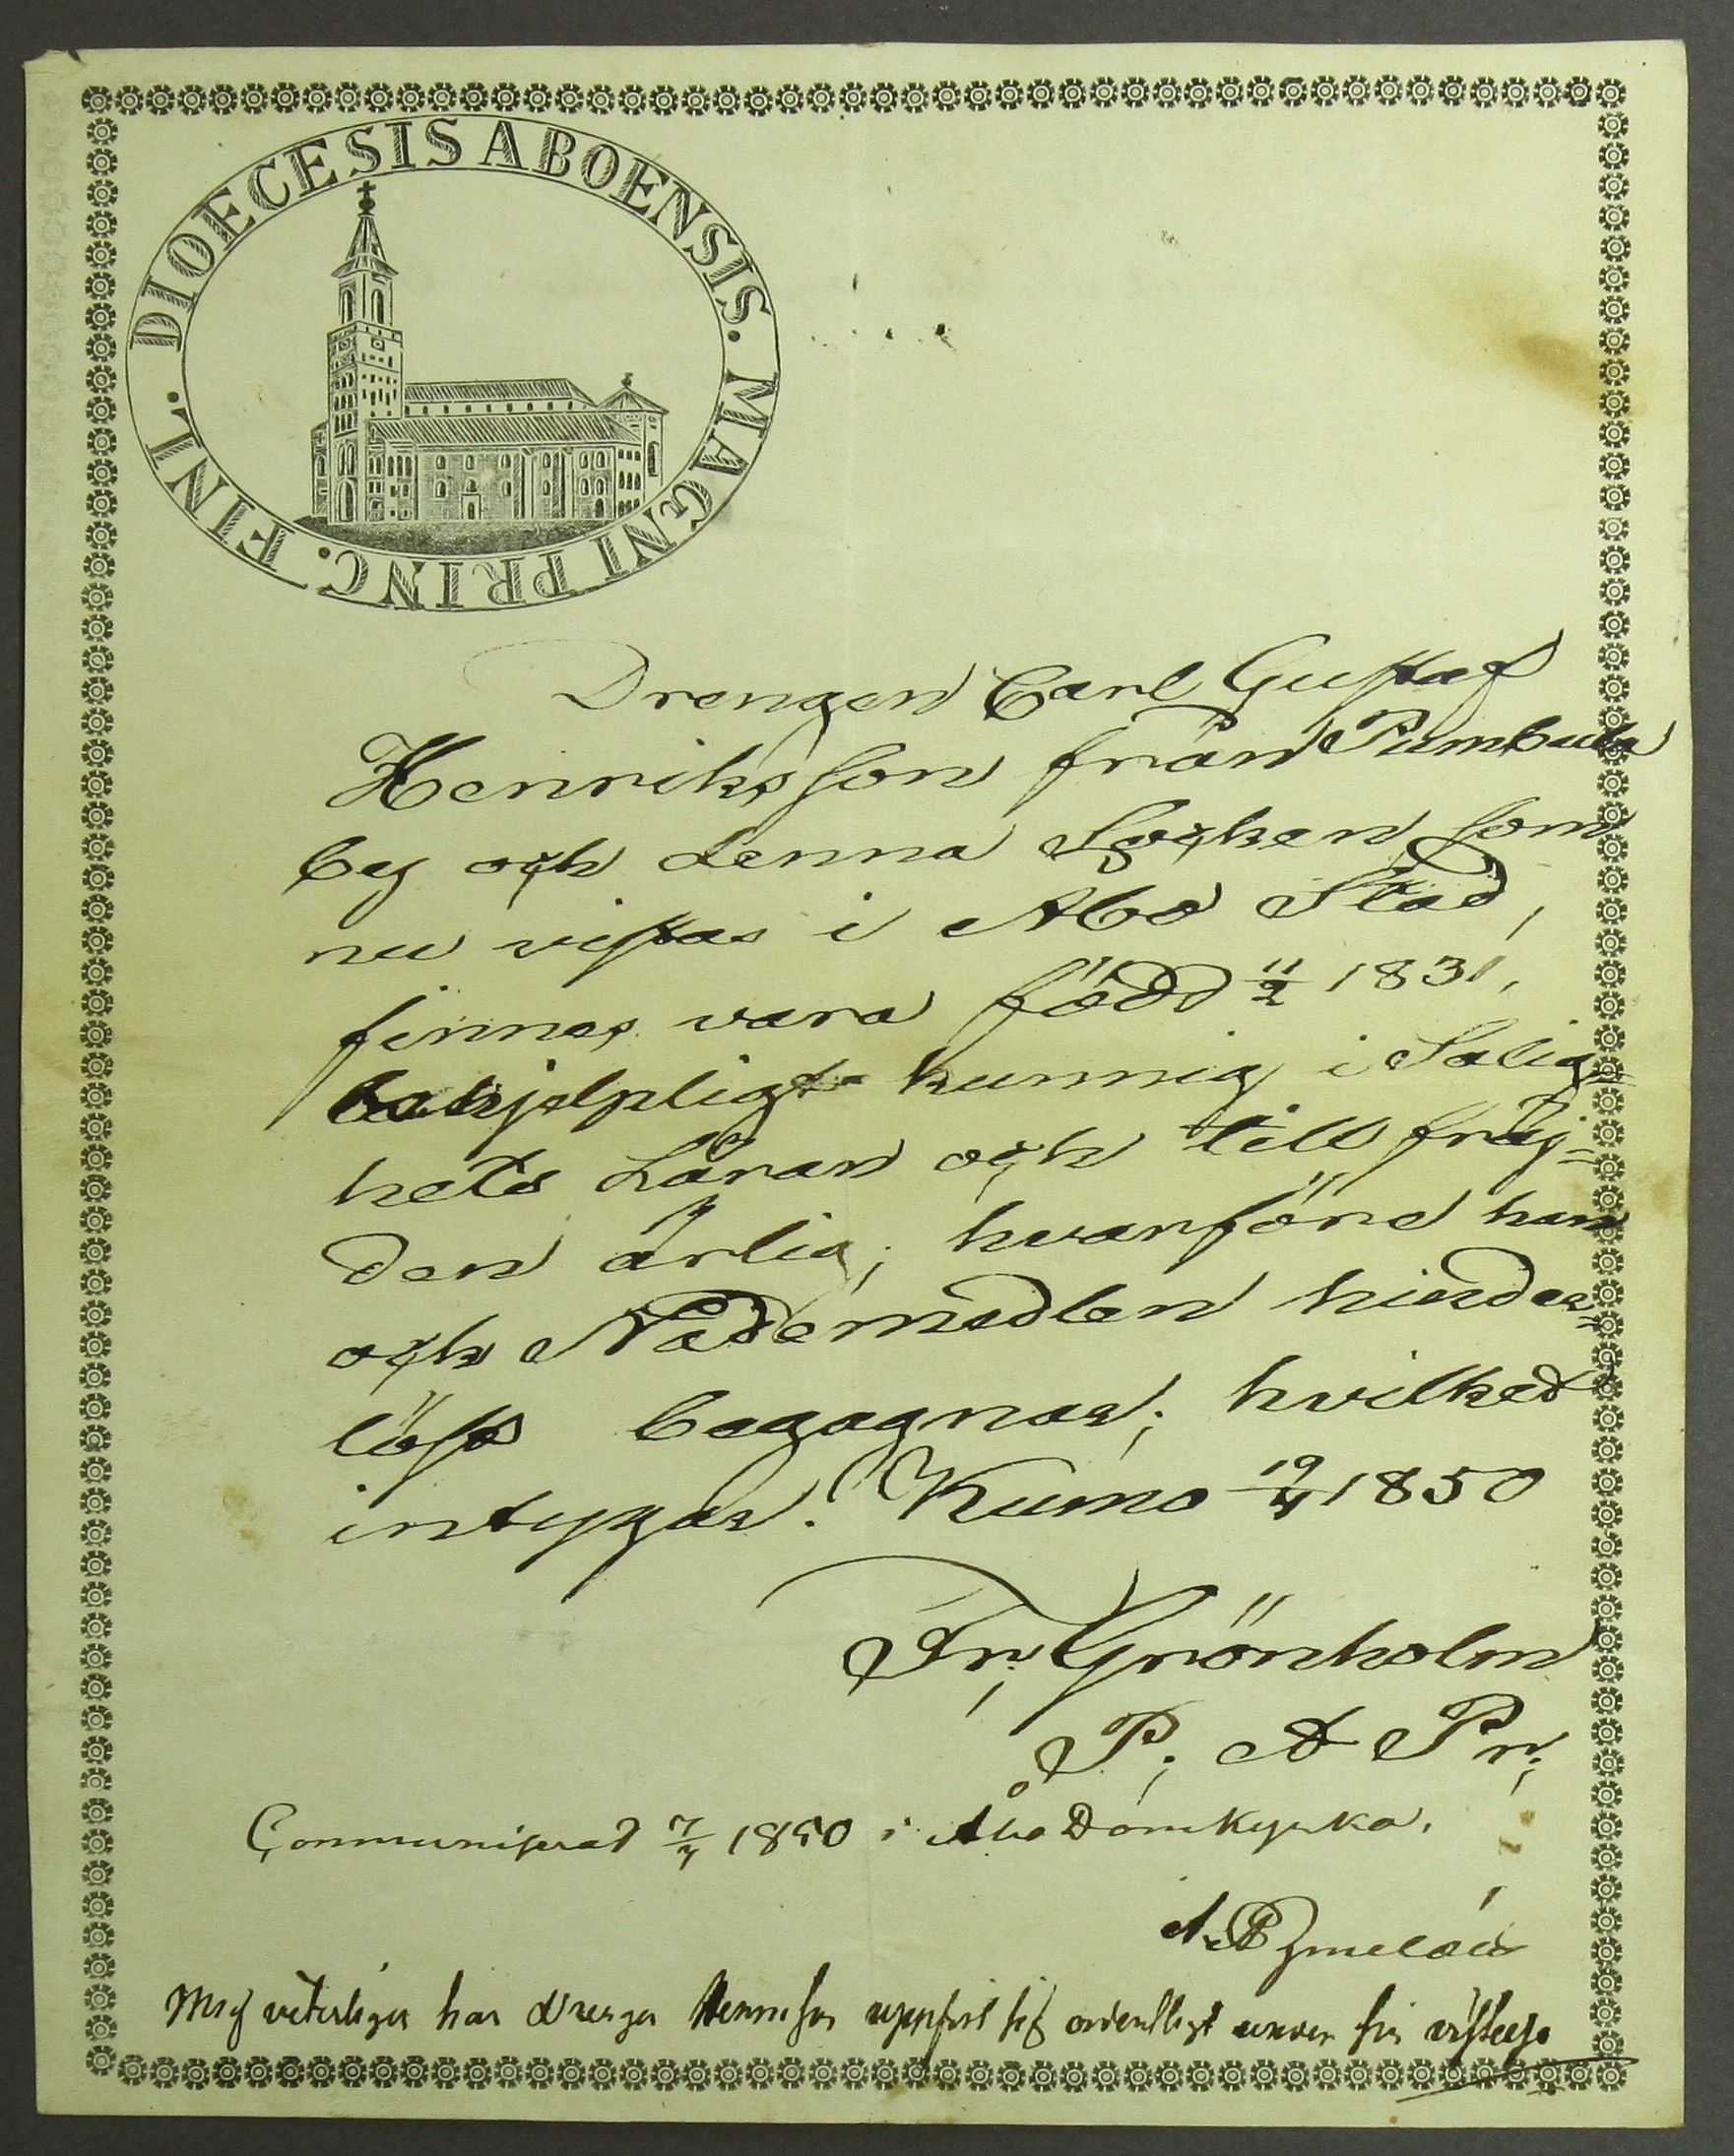 DIOECESIS ABOENSIS. MAGNI PRINC. FINL.
Drengen Carl Gustaf
Henriksson från Pumbula
by och denna Socken som
nu vistas i Åbo Stad,
finnes vara född 11/2 1831,
behjelpligt kunnig i Salig-
hets Läran och till fräj-
den ärlig; hvarföre han
och Nådemedlen hinder-
löst begagnar; hvilket
intygas. Kumo 19/4 1850
Fr; Grönholm
P; A Pr;
Communiserat 7/7 1850 i Åbo Domkyrka.
Mig veterligen har drengen uppfört sig ordentligt under sin vistelse